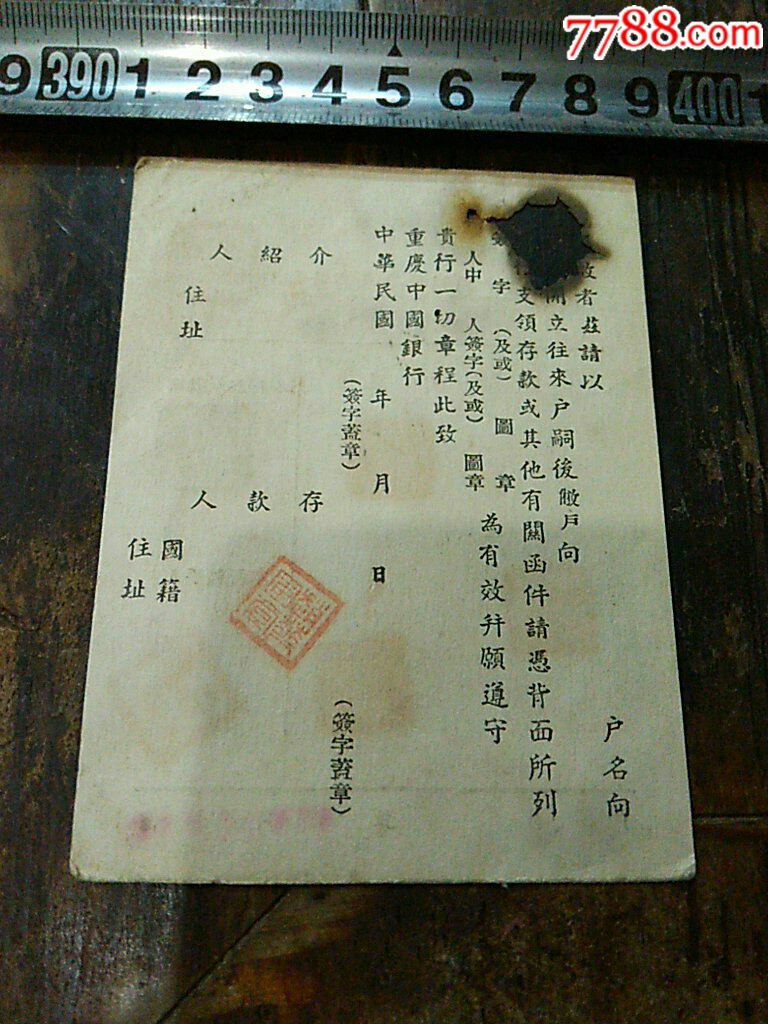 7788.com
9 390 1 2 3 4 5 6 7 8 9 400 1
者茲請以 户名向
開立往來户嗣後敝戶向
支領存款或其他有關函件請憑背面所列
字(及或)圖章
人中 人簽字(及或)圖章 為有效幷願遵守
貴行一切章程此致
重慶中國銀行
中華民國 年 月 日
介紹人 (簽字蓋章)
住址
存款人 (簽字蓋章)
國籍
住址